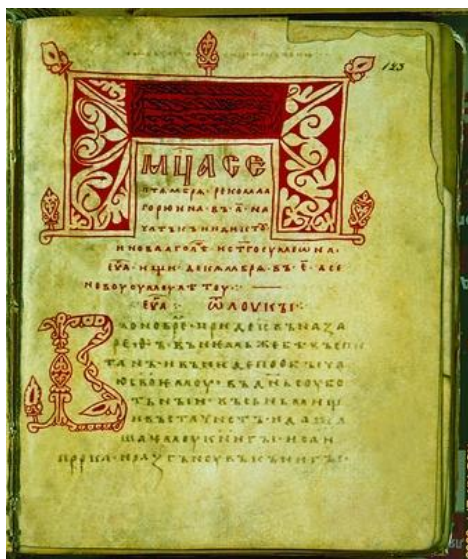 123
МЦ҃А СЕ
птѧмбрѧ · рекомаа
горюина · въ · а҃ · на
чатъкъ индикто
и новаа го лѣ · и ст҃го сумеѡна ·
еѵ҃а · ищи декѧмбрѧ · въ · е҃ · а се
новоуоумоу лѣтоу :·
еѵ҃а :· ѿ лоукы :·
Въ оно врѣ · приде въ наза
реѳъ · въ немь же бѣ въспи
танъ · и въниде по обычаю
своемоу · въ дн҃ь соубо
тьнъи · въ съньмищ
и въста чистъ · и даша
емоу книгы исаи
прр҃ка · и разгънувъ кънигы ·